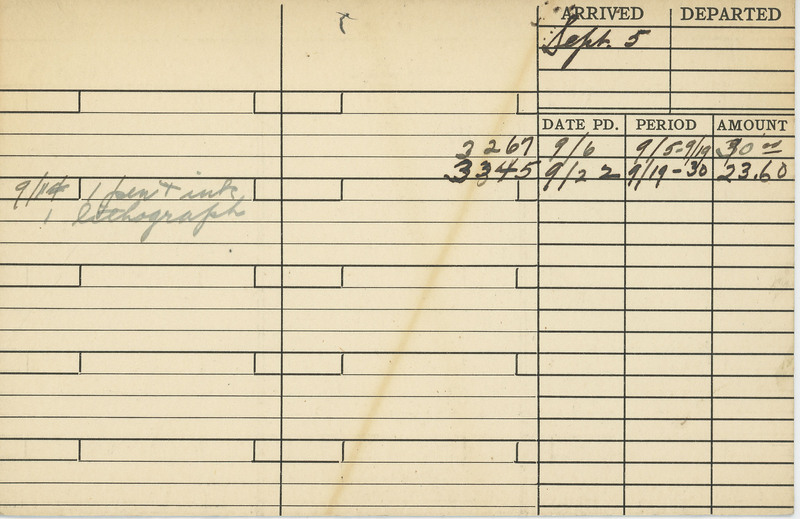 ARRIVED DEPARTED
Sept. 5
DATE PD. PERIOD AMOUNT
3267 9/6 9/5-9/19 30 00
3345 9/22 9/19-30 23.60
9/14 1 pen + ink
1 lithograph